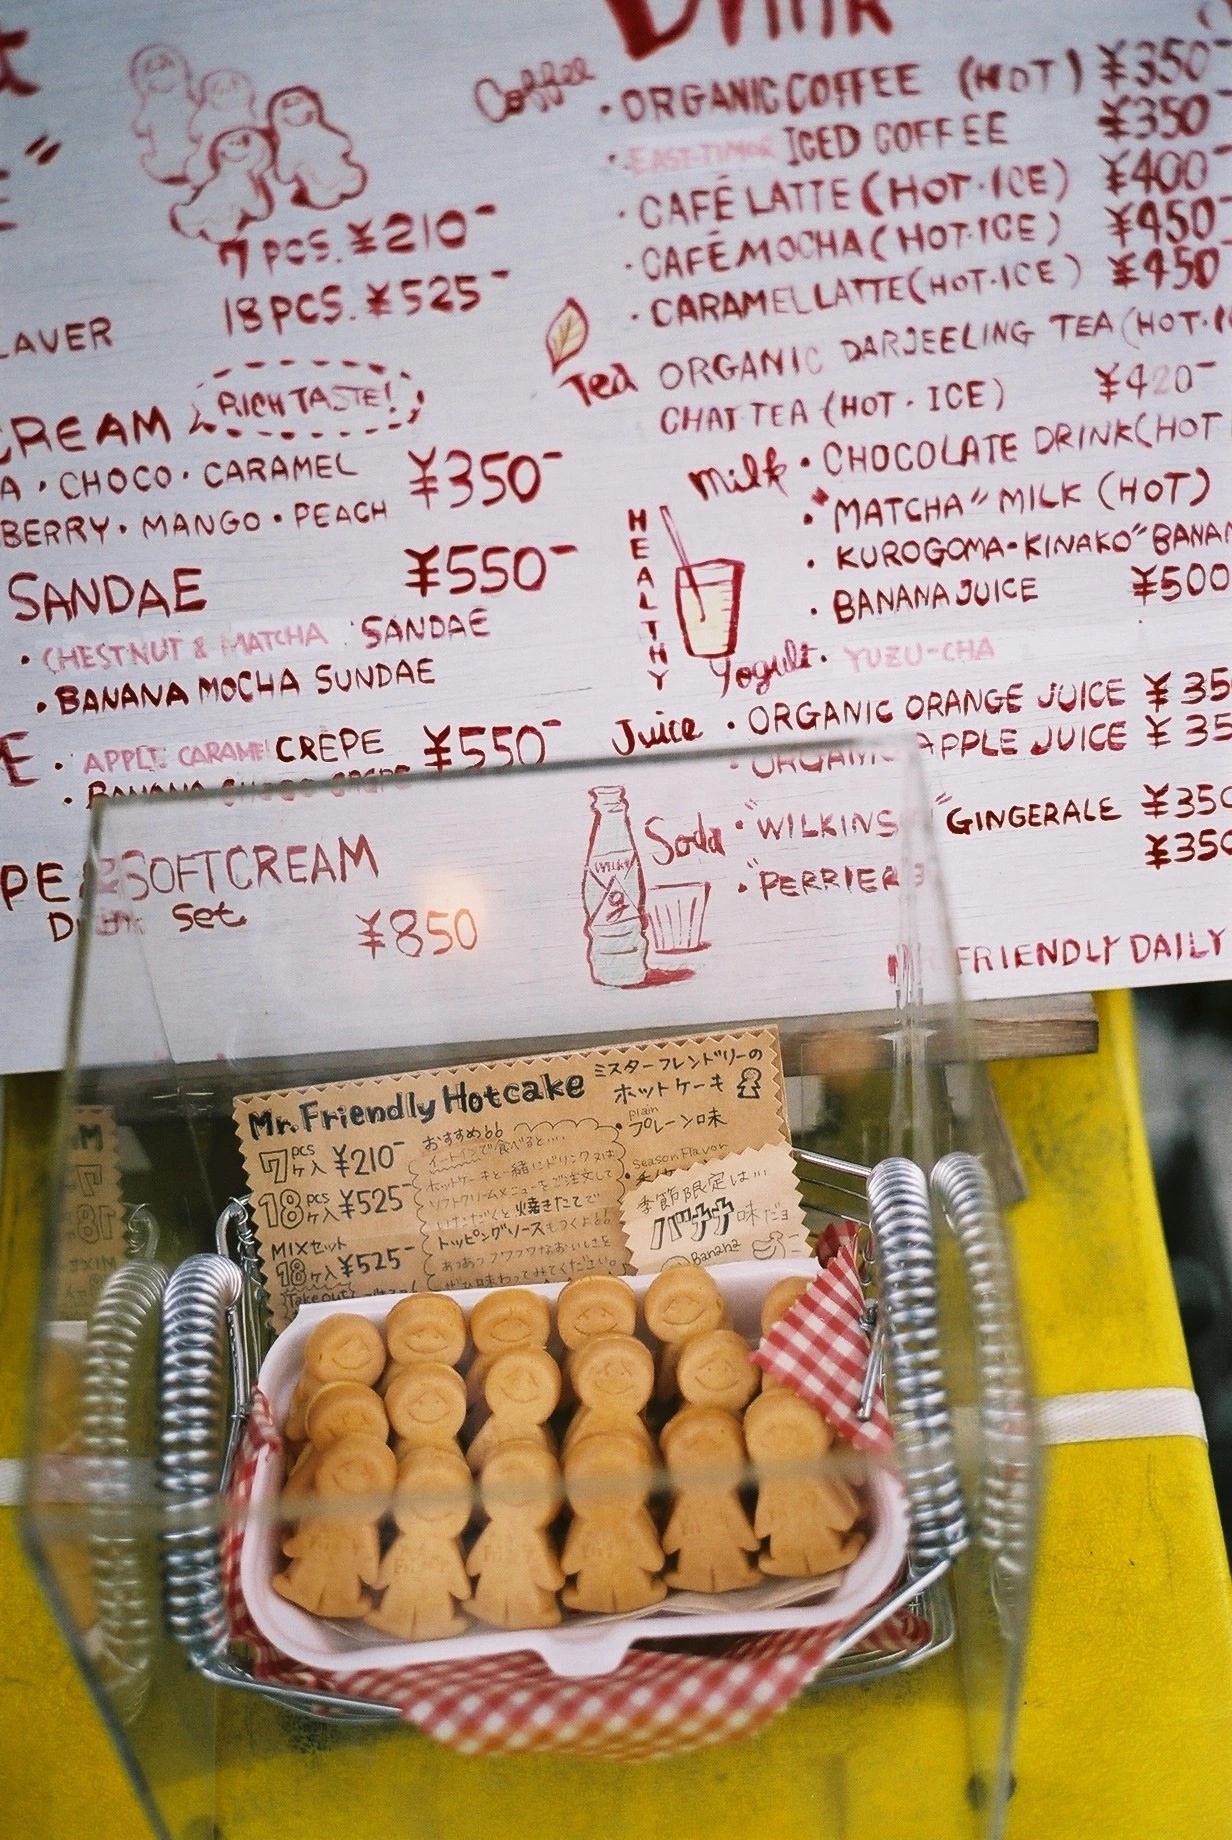 Drink
Coffee
・ORGANIC COFFEE (HOT) ¥350-
・EAST-TIMOR ICED COFFEE ¥350-
・CAFÉ LATTE (HOT・ICE) ¥400-
・CAFÉ MOCHA (HOT・ICE) ¥450-
・CARAMEL LATTE (HOT・ICE) ¥450-
Tea
ORGANIC DARJEELING TEA (HOT・I
CHAI TEA (HOT・ICE) ¥420-
Milk
・CHOCOLATE DRINK (HOT
・"MATCHA" MILK (HOT)
・KUROGOMA-KINAKO" BANAN
・BANANA JUICE ¥500
HEALTHY
Yogult・YUZU-CHA
Juice
・ORGANIC ORANGE JUICE ¥35
・ORGANIC APPLE JUICE ¥35
Soda
・"WILKINS "GINGERALE ¥350
・"PERRIER ¥350
FRIENDLY DAILY
7 PCS. ¥210-
18 PCS. ¥525-
LAVER
CREAM
RICH TASTE!
A・CHOCO・CARAMEL ¥350-
BERRY・MANGO・PEACH
SANDAE ¥550-
・CHESTNUT & MATCHA SANDAE
・BANANA MOCHA SUNDAE
E・APPLE CARAMEL CRÉPE ¥550-
・BANANA CHOCO CREPE
PE & SOFTCREAM
Drink Set
¥850
Mr. Friendly Hotcake
7pcsケ入 ¥210-
18pcsケ入 ¥525-
MIXセット
18ケ入 ¥525-
Take out
おすすめ
イートインで食べると....
ホットケーキと一緒にドリンク又は
ソフトクリームメニューをご注文して
いただくと焼きたてで
トッピングソースもつくよ
あつあつフワフワなおいしさを
ぜひ味わってみてください。
ミスターフレンドリーの
ホットケーキ
・plain
プレーン味
season Flavor
季節限定は...
バナナ味だョ
Banana